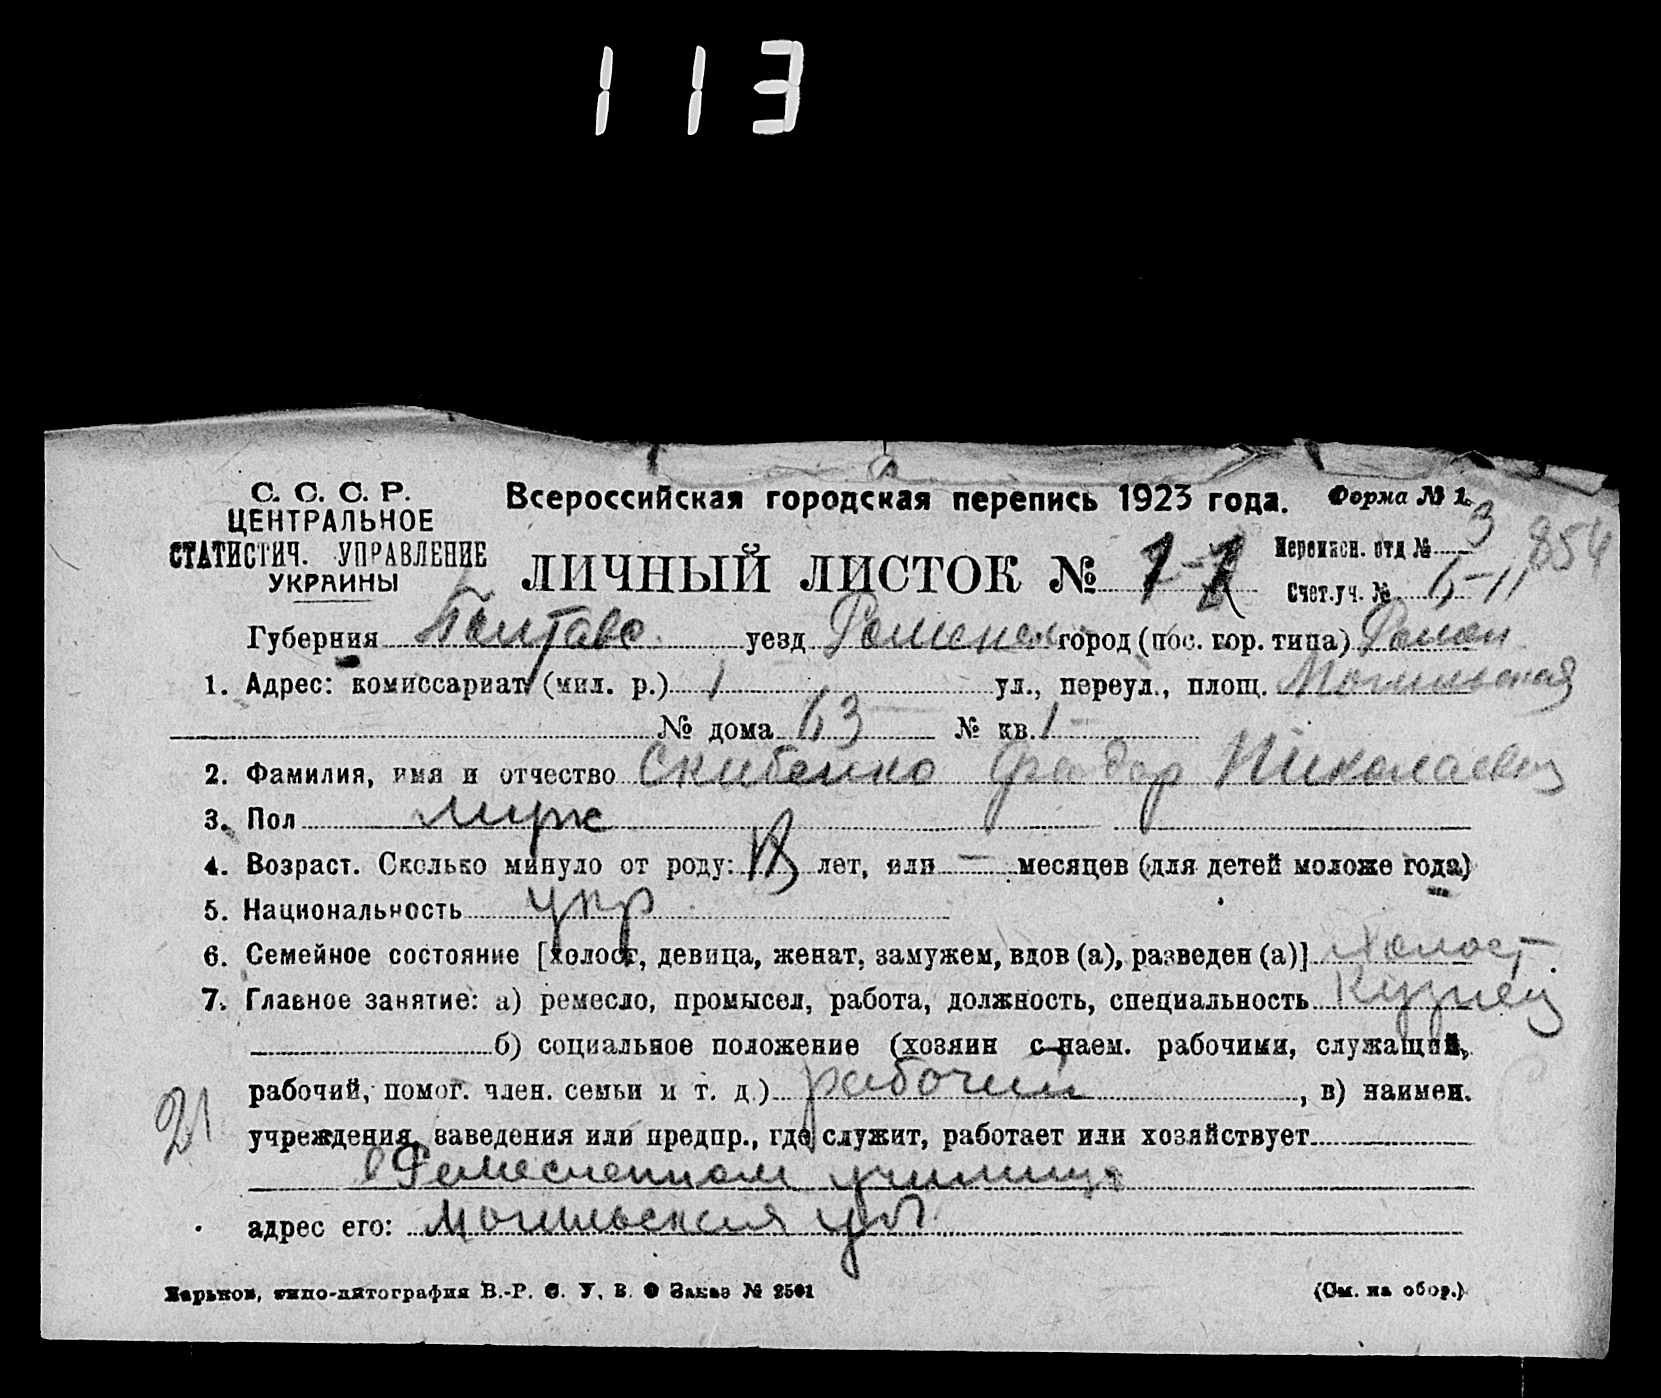 113
С. С. С. Р.
ЦЕНТРАЛЬНОЕ
СТАТИСТИЧ. УПРАВЛЕНИЕ
УКРАИНЫ
Всероссийская городская перепись 1923 года.
Форма № 1.
ЛИЧНЫЙ ЛИСТОК №
Переписн. отд № 3
854
Счет.уч. №
Губерния Полтавс. уезд Роменск город (пос. гор. типа) Ромен
1. Адрес: комиссариат (мил. р.) 1 ул., переул., площ. Могильская
№ дома 63 № кв. 1
2. Фамилия, имя и отчество Скибенко Фёдор Николаевич
3. Пол муж
4. Возраст. Сколько минуло от роду: лет, или — месяцев (для детей моложе года)
5. Национальность укр
6. Семейное состояние [холост, девица, женат, замужем, вдов (а), разведен (а)] Холост.
7. Главное занятие: а) ремесло, промысел, работа, должность, специальность Кузнец
б) социальное положение (хозяин с наем. рабочими, служащий,
рабочий, помог. член. семьи и т. д.) рабочий, в) наимен.
21 учреждения, заведения или предпр., где служит, работает или хозяйствует
в Ремесленном училище
адрес его: Могильская ул.
Харьков, типо-литография В.-Р. С. У. В. О Заказ № 2501
(См. на обор.)